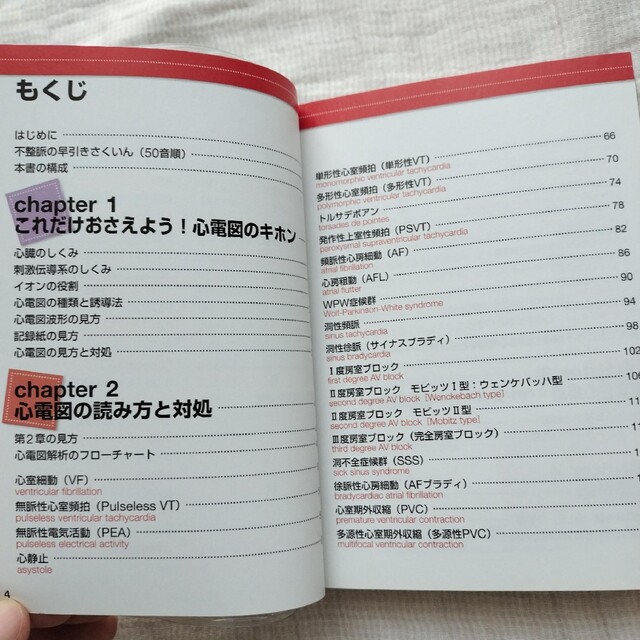 もくじ
はじめに
不整脈の早引きさくいん（50音順）
本書の構成
chapter 1
これだけおさえよう！心電図のキホン
心臓のしくみ
刺激伝導系のしくみ
イオンの役割
心電図の種類と誘導法
心電図波形の見方
記録紙の見方
心電図の見方と対処
chapter 2
心電図の読み方と対処
第2章の見方
心電図解析のフローチャート
心室細動（VF）
ventricular fibrillation
無脈性心室頻拍（Pulseless VT）
pulseless ventricular tachycardia
無脈性電気活動（PEA）
pulseless electrical activity
心静止
asystole
4
単形性心室頻拍（単形性VT） 66
monomorphic ventricular tachycardia
多形性心室頻拍（多形性VT） 70
polymorphic ventricular tachycardia
トルサデポアン 74
torsades de pointes
発作性上室性頻拍（PSVT） 78
paroxysmal supraventricular tachycardia
頻脈性心房細動（AF） 82
atrial fibrillation
心房粗動（AFL） 86
atrial flutter
WPW症候群 90
Wolf-Parkinson-White syndrome
洞性頻脈 94
sinus tachycardia
洞性徐脈（サイナスブラディ） 98
sinus bradycardia
Ⅰ度房室ブロック 102
first degree AV block
Ⅱ度房室ブロック モビッツⅠ型：ウェンケバッハ型 106
second degree AV block［Wenckebach type］
Ⅱ度房室ブロック モビッツⅡ型
second degree AV block［Mobitz type］
Ⅲ度房室ブロック（完全房室ブロック）
third degree AV block
洞不全症候群（SSS）
sick sinus syndrome
徐脈性心房細動（AFブラディ）
bradycardiac atrial fibrillation
心室期外収縮（PVC）
premature ventricular contraction
多源性心室期外収縮（多源性PVC）
multifocal ventricular contraction